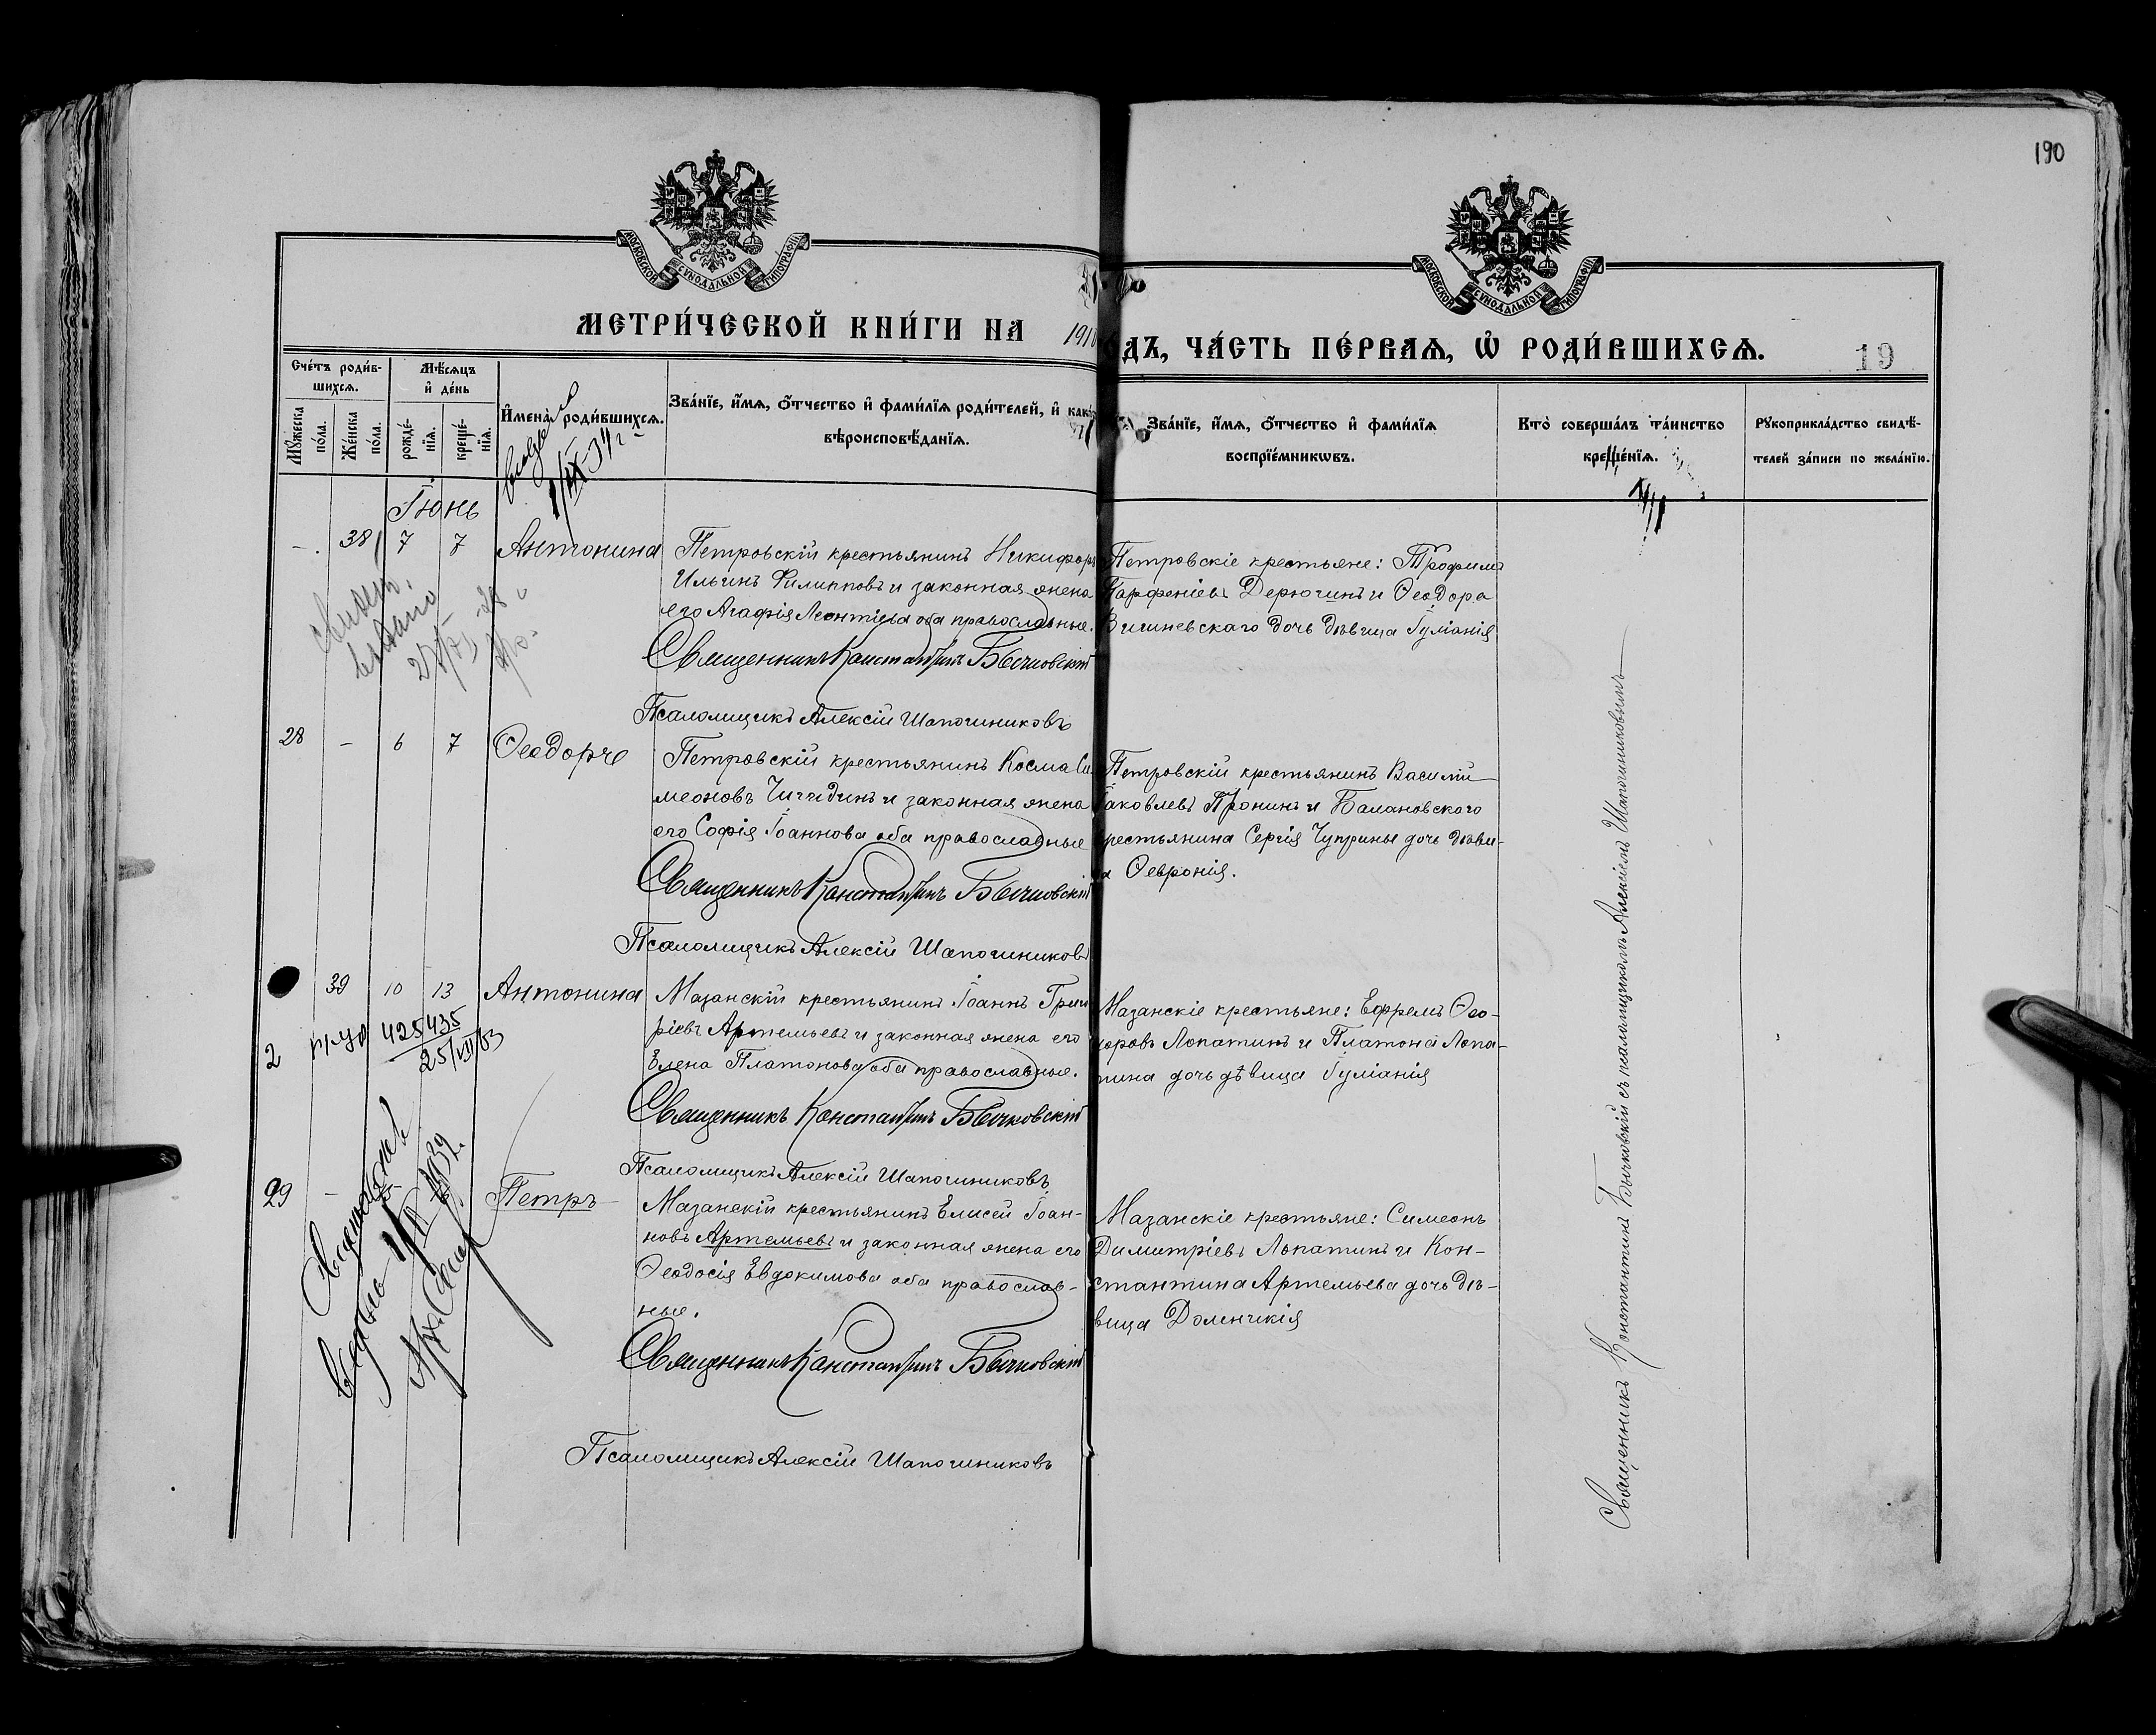 190
МОСКОВСКОЙ СУНОДАЛЬНОЙ ТИПОГРАФІИ
МОСКОВСКОЙ СУНОДАЛЬНОЙ ТИПОГРАФІИ
МЕТРИ́ЧЕСКОЙ КНИ́ГИ НА 1910
ДЪ, ЧА́СТЬ ПЕ́РВАѦ, Ѡ҆ РОДИ́ВШИХСѦ.
19
Сче́тъ роди́в-
шихсѧ.
Мꙋжеска по́ла.
Же́нска по́ла.
Мѣ́сѧцъ
и҆ де́нь
рожде́-
нїѧ.
креще́-
нїѧ.
И҆мена̀ роди́вшихсѧ.
Зва́нїе, и҆́мѧ, ѻ҆́тчество и҆ фами́лїѧ роди́телей, и҆ како
вѣроисповѣ́данїѧ.
Зва́нїе, и҆́мѧ, ѻ҆́тчество и҆ фами́лїѧ
воспрїе́мникѡвъ.
Кто̀ соверша́лъ та́инство
креще́нїѧ.
Рꙋкоприкла́дство свидѣ́-
телей за́писи по жела́нїю.
Іюнь
-. 38 7 7 Антонина
Петровскій крестьянинъ Никифоръ
Ильинъ Филипповъ и законная жена
его Агафія Леонтіева оба православные.
Священникъ Константинъ Бычковскій
Псаломщикъ Алексій Шапошниковъ
Петровскіе крестьяне: Трофимъ
Парфеніевъ Дерюгинъ и Ѳеодора
Вишневскаго дочь дѣвица Іуліанія
28 - 6 7 Ѳеодоръ
Петровскій крестьянинъ Косма Си
меоновъ Чигидинъ и законная жена
его Софія Іоаннова оба православные
Священникъ Константинъ Бычковскій
Псаломщикъ Алексій Шапошниковъ
Петровскій крестьянинъ Василій
Іаковлевъ Пронинъ и Балановского
рестьянина Сергія Чуприны дочь дѣви-
а Ѳевронія.
39 10 13 Антонина
2 425 435
25/VII 53
Мазанскій крестьянинъ Іоаннъ Григо
ріевъ Артемьевъ и законная жена его
Елена Платонова оба православные.
Священникъ Константинъ Бычковскій
Псаломщикъ Алексій Шапошниковъ
Мазанскіе крестьяне: Ефремъ Ѳео-
доровъ Лопатинъ и Платона Лопа-
тина дочь дѣвица Іуліанія
29 - Петръ
Мазанскій крестьянинъ Елисей Іоан-
новъ Артемьевъ и законная жена его
Ѳеодосія Евдокимова оба православ-
ные.
Священникъ Константинъ Бычковскій
Псаломщикъ Алексій Шапошниковъ
Мазанскіе крестьяне: Симеонъ
Димитріевъ Лопатинъ и Кон-
стантина Артемьева дочь дѣ-
вица Доменикія
Священникъ Константинъ Бычковскій съ псаломщикомъ Алексіемъ Шапошниковымъ